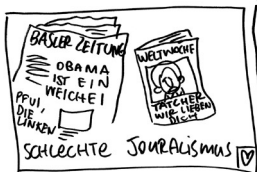 BASLER ZEITUNG
OBAMA
IST EIN
WEICHEI
PFUI,
DIE
LINKEN
WELTWOCHE
TATCHER
WIR LIEBEN
DICH
SCHLECHTE JOURALISMUS